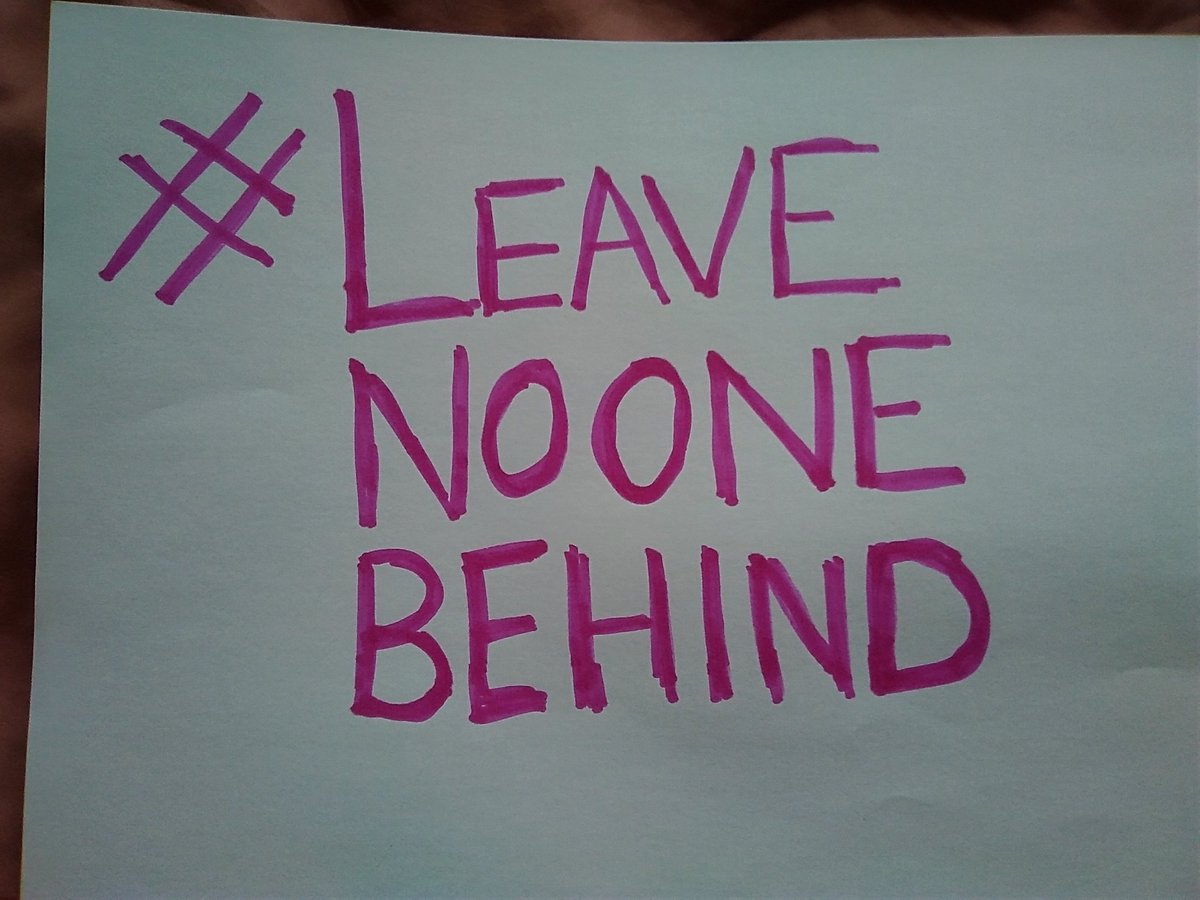 #LEAVE
NOONE
BEHIND